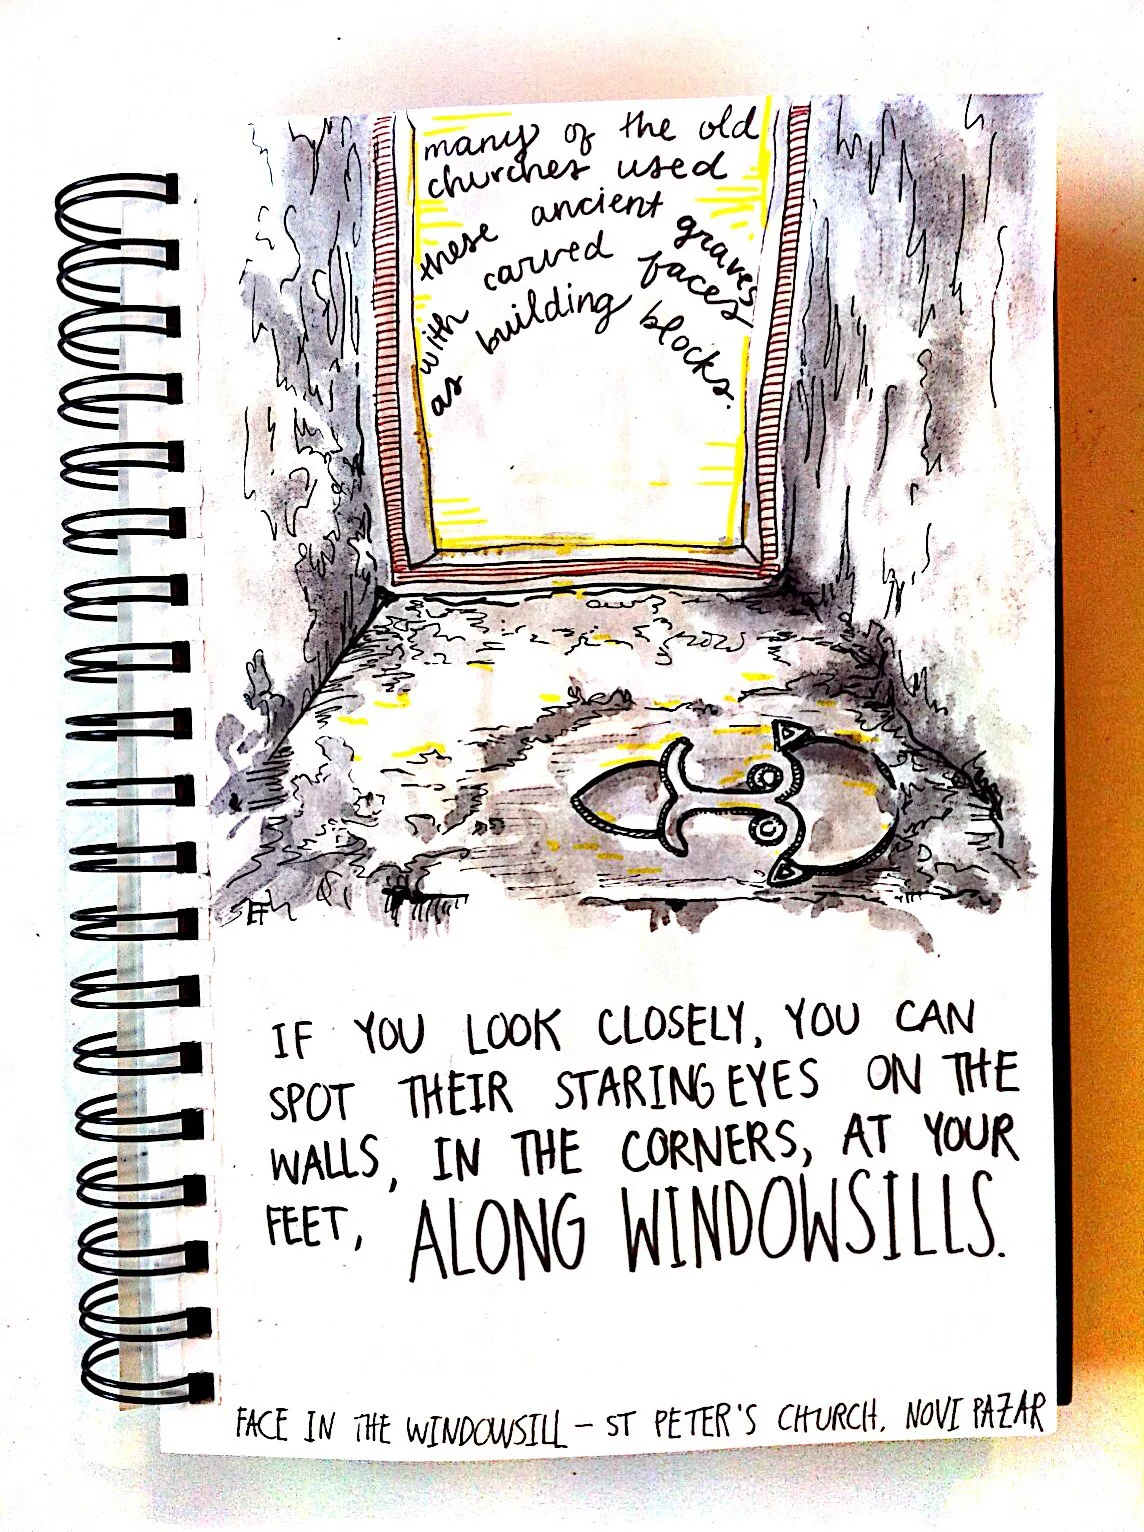 many of the old
churches used
these ancient graves
with carved faces
as building blocks.
EF
IF YOU LOOK CLOSELY, YOU CAN
SPOT THEIR STARING EYES ON THE
WALLS, IN THE CORNERS, AT YOUR
FEET, ALONG WINDOWSILLS.
FACE IN THE WINDOWSILL – ST PETER'S CHURCH, NOVI PAZAR